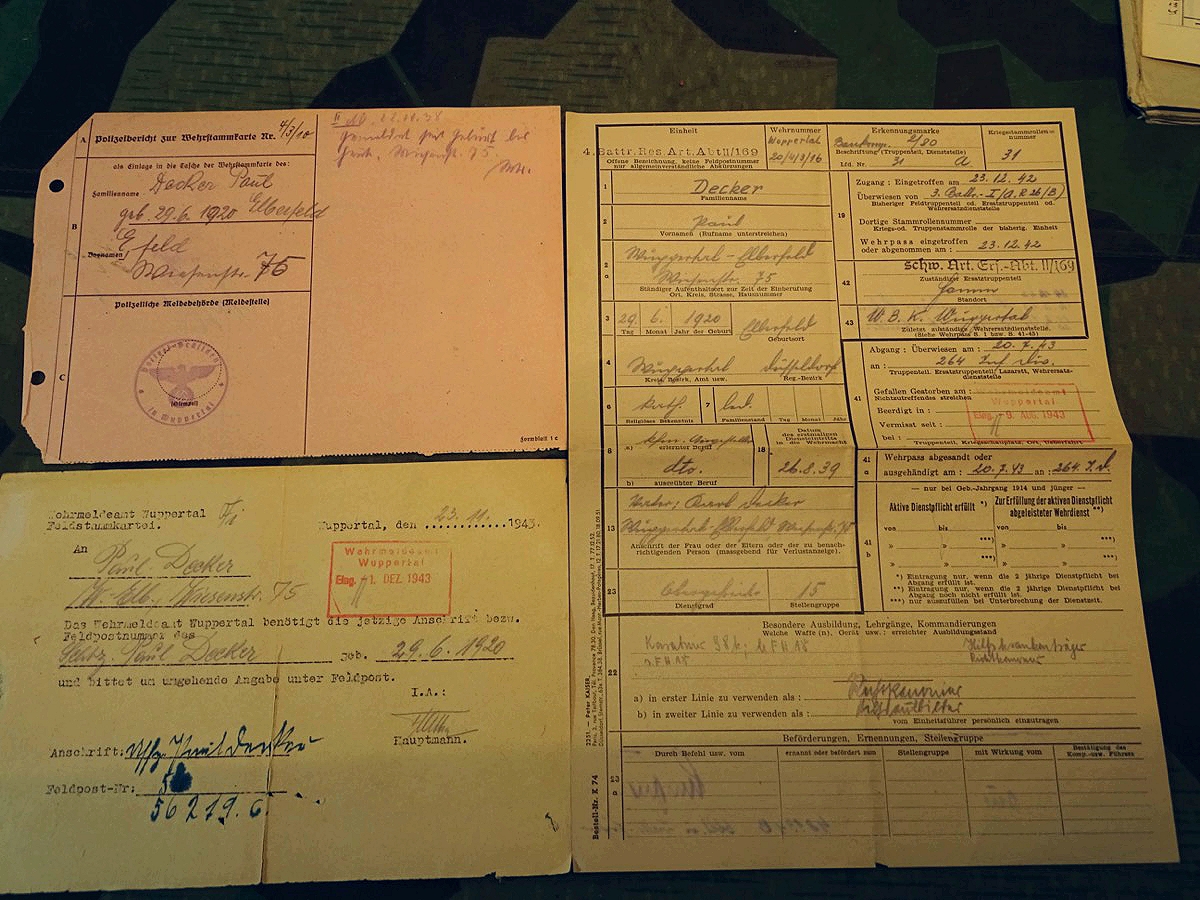 A Polizeibericht zur Wehrstammkarte Nr. 4/3/10
als Einlage in die Tasche der Wehrstammkarte des:
Familienname Decker Paul
B
geb. 29.6.1920 Elberfeld
E'feld
Vornamen
Wiesenstr. 75
Polizeiliche Meldebehörde (Meldestelle)
C
in Wuppertal
12.10.38
Wiesenstr. 75
Formblatt 1 c
Wehrmeldeamt Wuppertal
Feldstammkartei.
Wuppertal, den 23.11. 1943.
An
Paul Decker
W.-Elb., Wiesenstr. 75
Wehrmeldeamt
Wuppertal
Eing. 1. DEZ. 1943
Das Wehrmeldeamt Wuppertal benötigt die jetzige Anschrift bezw.
Feldpostnummer des
Paul Decker geb. 29.6.1920
und bittet um umgehende Angabe unter Feldpost.
I.A.:
Hauptmann.
Anschrift: Uffz. Paul Decker
Feldpost-Nr:
56219.C.
Einheit
4. Battr. Res. Art. Abt II/169
Offene Bezeichnung, keine Feldpostnummer
nur allgemeinverständliche Abkürzungen
Wehrnummer
Wuppertal
20/4/3/16
Erkennungsmarke
2/80
Beschriftung (Truppenteil, Dienststelle)
Lfd. Nr. 31 A
Kriegsstammrollen=
nummer
31
1 Decker
Familienname
2 Paul
Vornamen (Rufname unterstreichen)
2 a Wuppertal-Elberfeld
Wiesenstr. 75
Ständiger Aufenthaltsort zur Zeit der Einberufung
Ort, Kreis, Strasse, Hausnummer
3 29. 6. 1920 Elberfeld
Tag Monat Jahr der Geburt Geburtsort
4 Wuppertal Düsseldorf
Kreis, Bezirk, Amt usw. Reg.-Bezirk
6 kath. 7 led.
Religiöses Bekenntnis Familienstand Tag Monat Jahr
8 kfm. Angestellter
a) erlernter Beruf
dto.
b) ausgeübter Beruf
18 Datum
des erstmaligen
Diensteintritts
in die Wehrmacht
26.8.39
13 Vater: Decker
Wuppertal-Elberfeld Wiesenstr. 75
Anschrift der Frau oder der Eltern oder der zu benach-
richtigenden Person (massgebend für Verlustanzeige).
23 Obergefreiter 15
Dienstgrad Stellengruppe
19 Zugang: Eingetroffen am 23.12.42
Überwiesen von 3. Battr.
Bisheriger Feldtruppenteil od. Ersatztruppenteil od.
Wehrersatzdienststelle
Dortige Stammrollennummer
Kriegs-od. Truppenstammrolle der bisherig. Einheit
Wehrpass eingetroffen
oder abgenommen am: 23.12.42
42 schw. Art. Ers.-Abt. II/169
Zuständiger Ersatztruppenteil
Hamm
Standort
43 W.B.K. Wuppertal
Zuletzt zuständige Wehrersatzdienststelle.
(Siehe Wehrpass S. 1 bzw. S. 41-43)
Abgang: Überwiesen am: 20.7.43
an: 264 Inf. Div.
Truppenteil, Ersatztruppenteil, Lazarett, Wehrersatz-
dienststelle
41 Gefallen Gestorben am:
Nichtzutreffendes streichen
Beerdigt in:
Vermisst seit:
bei:
Truppenteil, Kriegsschauplatz, Ort, Ueberfahrt
Wehrmeldeamt
Wuppertal
Eing. 9. AUG. 1943
41 a Wehrpass abgesandt oder
ausgehändigt am: 20.7.43 an: 264. I.D.
— nur bei Geb.-Jahrgang 1914 und jünger —
41 b
Aktive Dienstpflicht
erfüllt *)
Zur Erfüllung der aktiven Dienstpflicht
abgeleisteter Wehrdienst **)
von bis von bis
***)
***)
***)
*) Eintragung nur, wenn die 2 jährige Dienstpflicht bei
Abgang erfüllt ist.
**) Eintragung nur, wenn die 2 jährige Dienstpflicht bei
Abgang noch nicht erfüllt ist.
***) nur auszufüllen bei Unterbrechung der Dienstzeit.
Besondere Ausbildung, Lehrgänge, Kommandierungen
Welche Waffe (n), Gerät usw.: erreichter Ausbildungsstand
22 Karabiner 98 k; le F.H 18
s.F.H 18
Hilfskrankenträger
Richtkanonier
a) in erster Linie zu verwenden als: Richtkanonier
b) in zweiter Linie zu verwenden als: Hilfsausbilder
vom Einheitsführer persönlich einzutragen
Beförderungen, Ernennungen, Stellengruppe
23 a
Durch Befehl usw. vom
ernannt oder befördert zum
Stellengruppe
mit Wirkung vom
Bestätigung des
Komp.-usw. Führers
Bestell-Nr. K 74
2251. — Peter KAISER